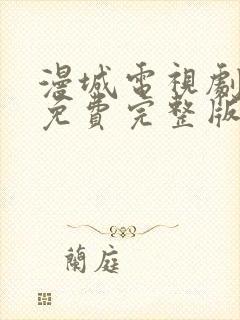 漫城電視劇
免費完整版
蘭庭